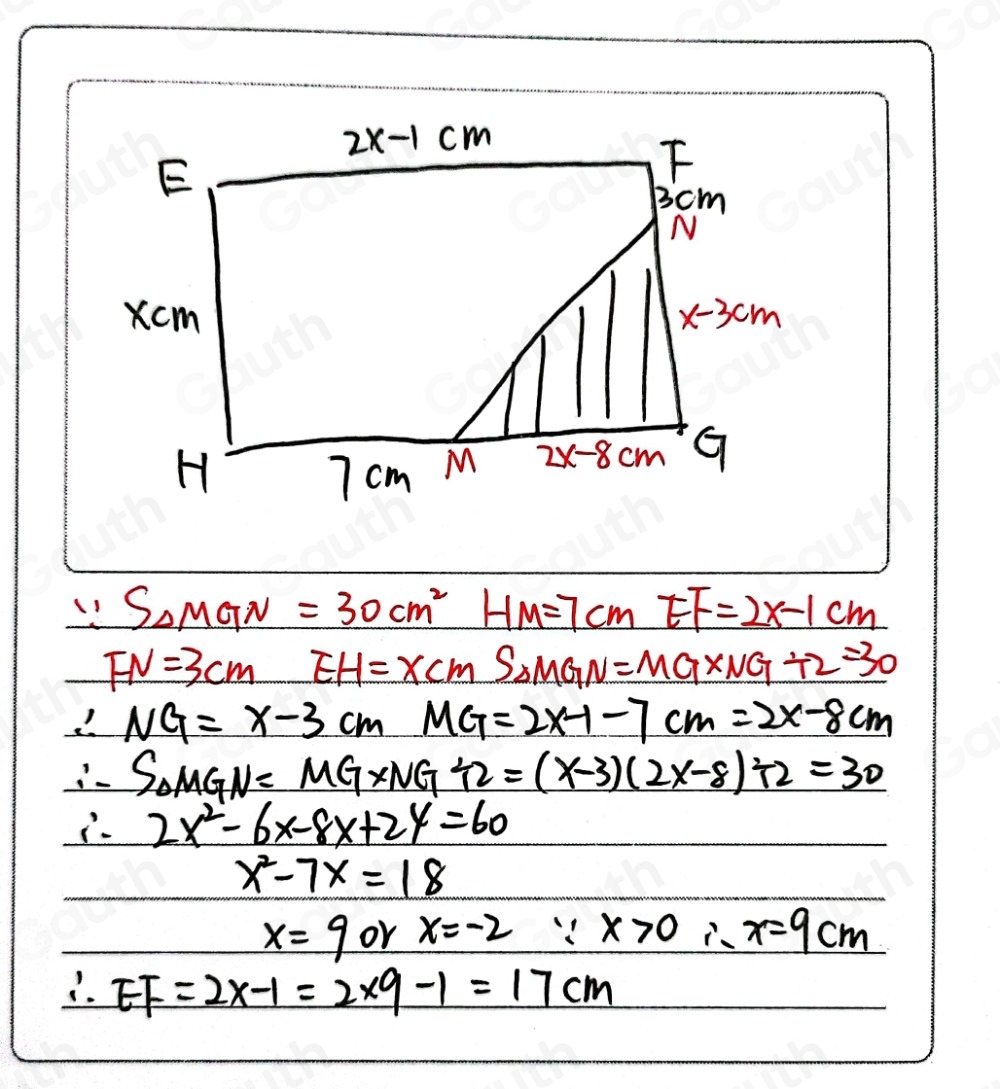 2x-1 cm
E
F
3cm
N
xcm
x-3cm
H
7 cm
M
2x-8 cm
G
∵ S△MGN = 30cm² HM=7cm EF=2x-1 cm
FN=3cm EH=xcm S△MGN=MG×NG÷2=30
∴ NG= x-3 cm MG=2x-1-7 cm =2x-8cm
∴ S△MGN= MG×NG÷2=(x-3)(2x-8)÷2=30
∴ 2x²-6x-8x+24=60
x²-7x=18
x=9 or x=-2 ∵ x>0 ∴ x=9cm
∴ EF=2x-1=2×9-1=17cm
Gauth